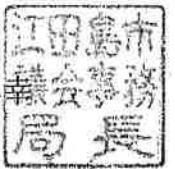 江田島市
幸
議会事務
局長